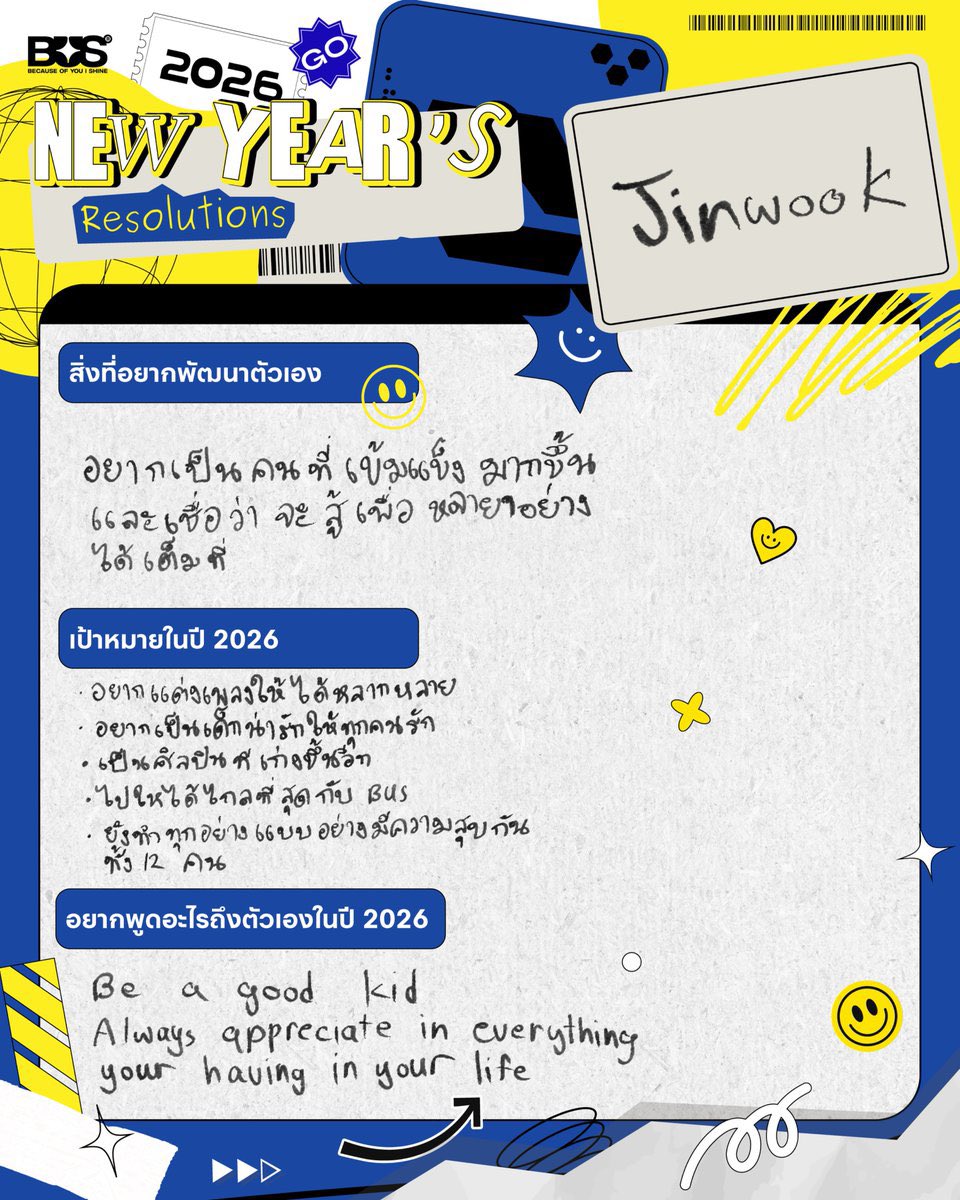 BUS
BECAUSE OF YOU I SHINE
2026
GO
NEW YEAR'S
Resolutions
Jinwook
สิ่งที่อยากพัฒนาตัวเอง
อยากเป็นคนที่ เข้มแข็ง มากขึ้น
และเชื่อว่า จะ สู้ เพื่อ หลายๆอย่าง
ได้เต็มที่
เป้าหมายในปี 2026
· อยากแต่งเพลงให้ ได้หลากหลาย
· อยากเป็นเด็กน่ารักให้ทุกคนรัก
· เป็นศิลปินที่เก่งขึ้นอีก
· ไปให้ได้ไกลที่สุดกับ BUS
· ยังทำทุกอย่างแบบอย่างมีความสุขกัน
ทั้ง 12 คน
อยากพูดอะไรถึงตัวเองในปี 2026
Be a good kid
Always appreciate in everything
your having in your life